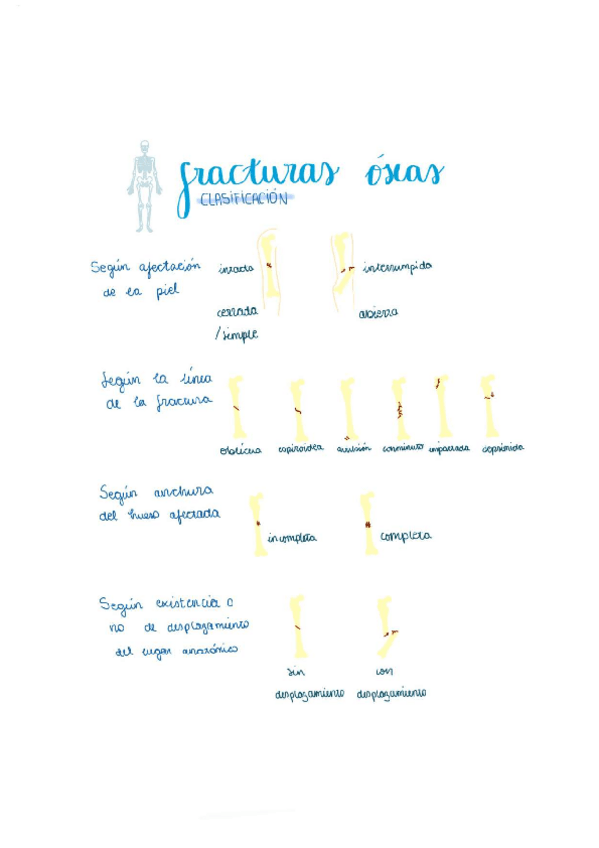 fracturas óseas
CLASIFICACIÓN
Según afectación
de la piel
intacta
interrumpida
cerrada
/simple
abierta
Según la línea
de la fractura
oblicua espiroidea avulsión conminuta impactada deprimida
Según anchura
del hueso afectada
incompleta
completa
Según existencia o
no de desplazamiento
del lugar anatómico
sin
desplazamiento
con
desplazamiento